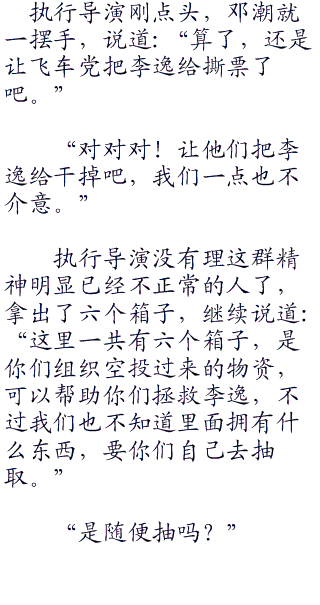 执行导演刚点头，邓潮就
一摆手，说道：“算了，还是
让飞车党把李逸给撕票了
吧。”
“对对对！让他们把李
逸给干掉吧，我们一点也不
介意。”
执行导演没有理这群精
神明显已经不正常的人了，
拿出了六个箱子，继续说道：
“这里一共有六个箱子，是
你们组织空投过来的物资，
可以帮助你们拯救李逸，不
过我们也不知道里面拥有什
么东西，要你们自己去抽
取。”
“是随便抽吗？”